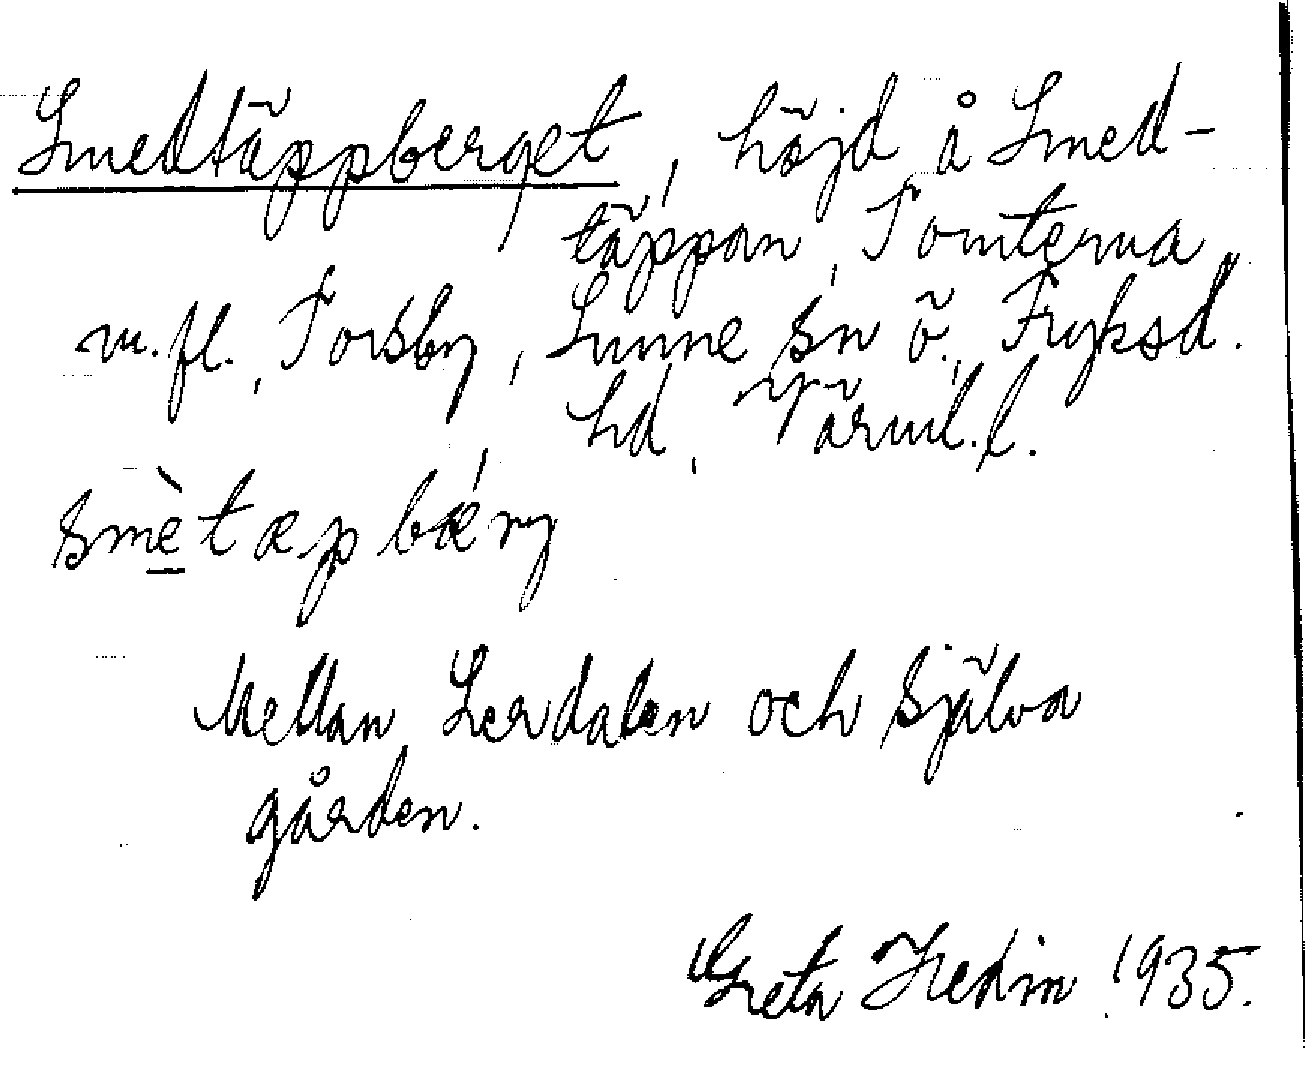 Smedtäppberget, höjd å Smed-
täppan, Tomterna
m.fl., Torsby, Sunne sn ö., Fryksd.
hd, Värml. l.
smètæpbǽrj
Mellan Lerdalen och själva
gården.
Greta Hedin 1935.